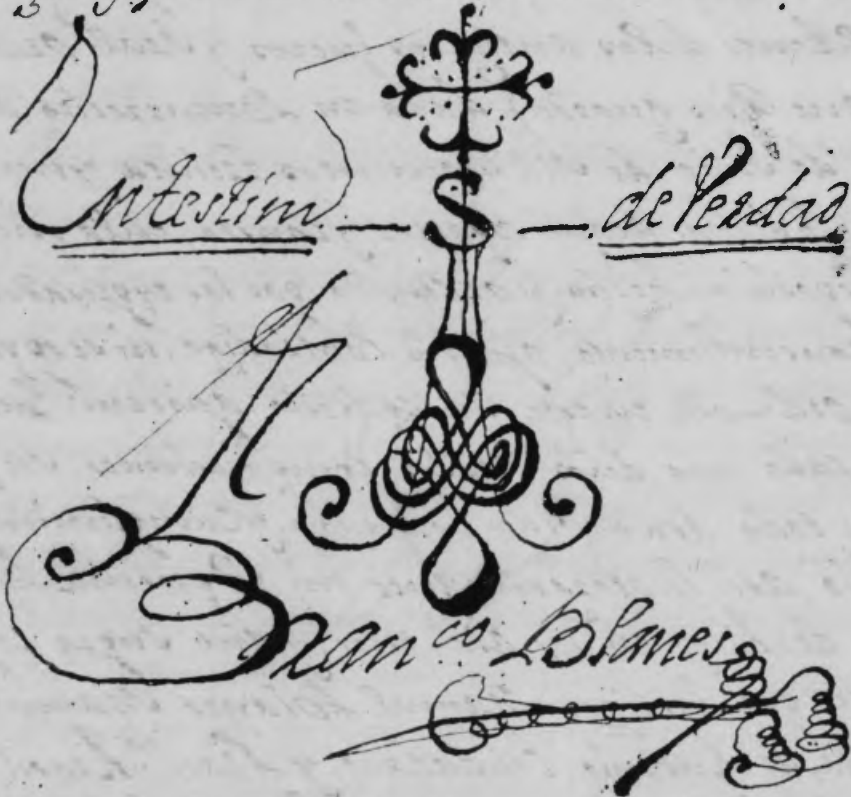 En testim S de Verdad
Franco Blanes